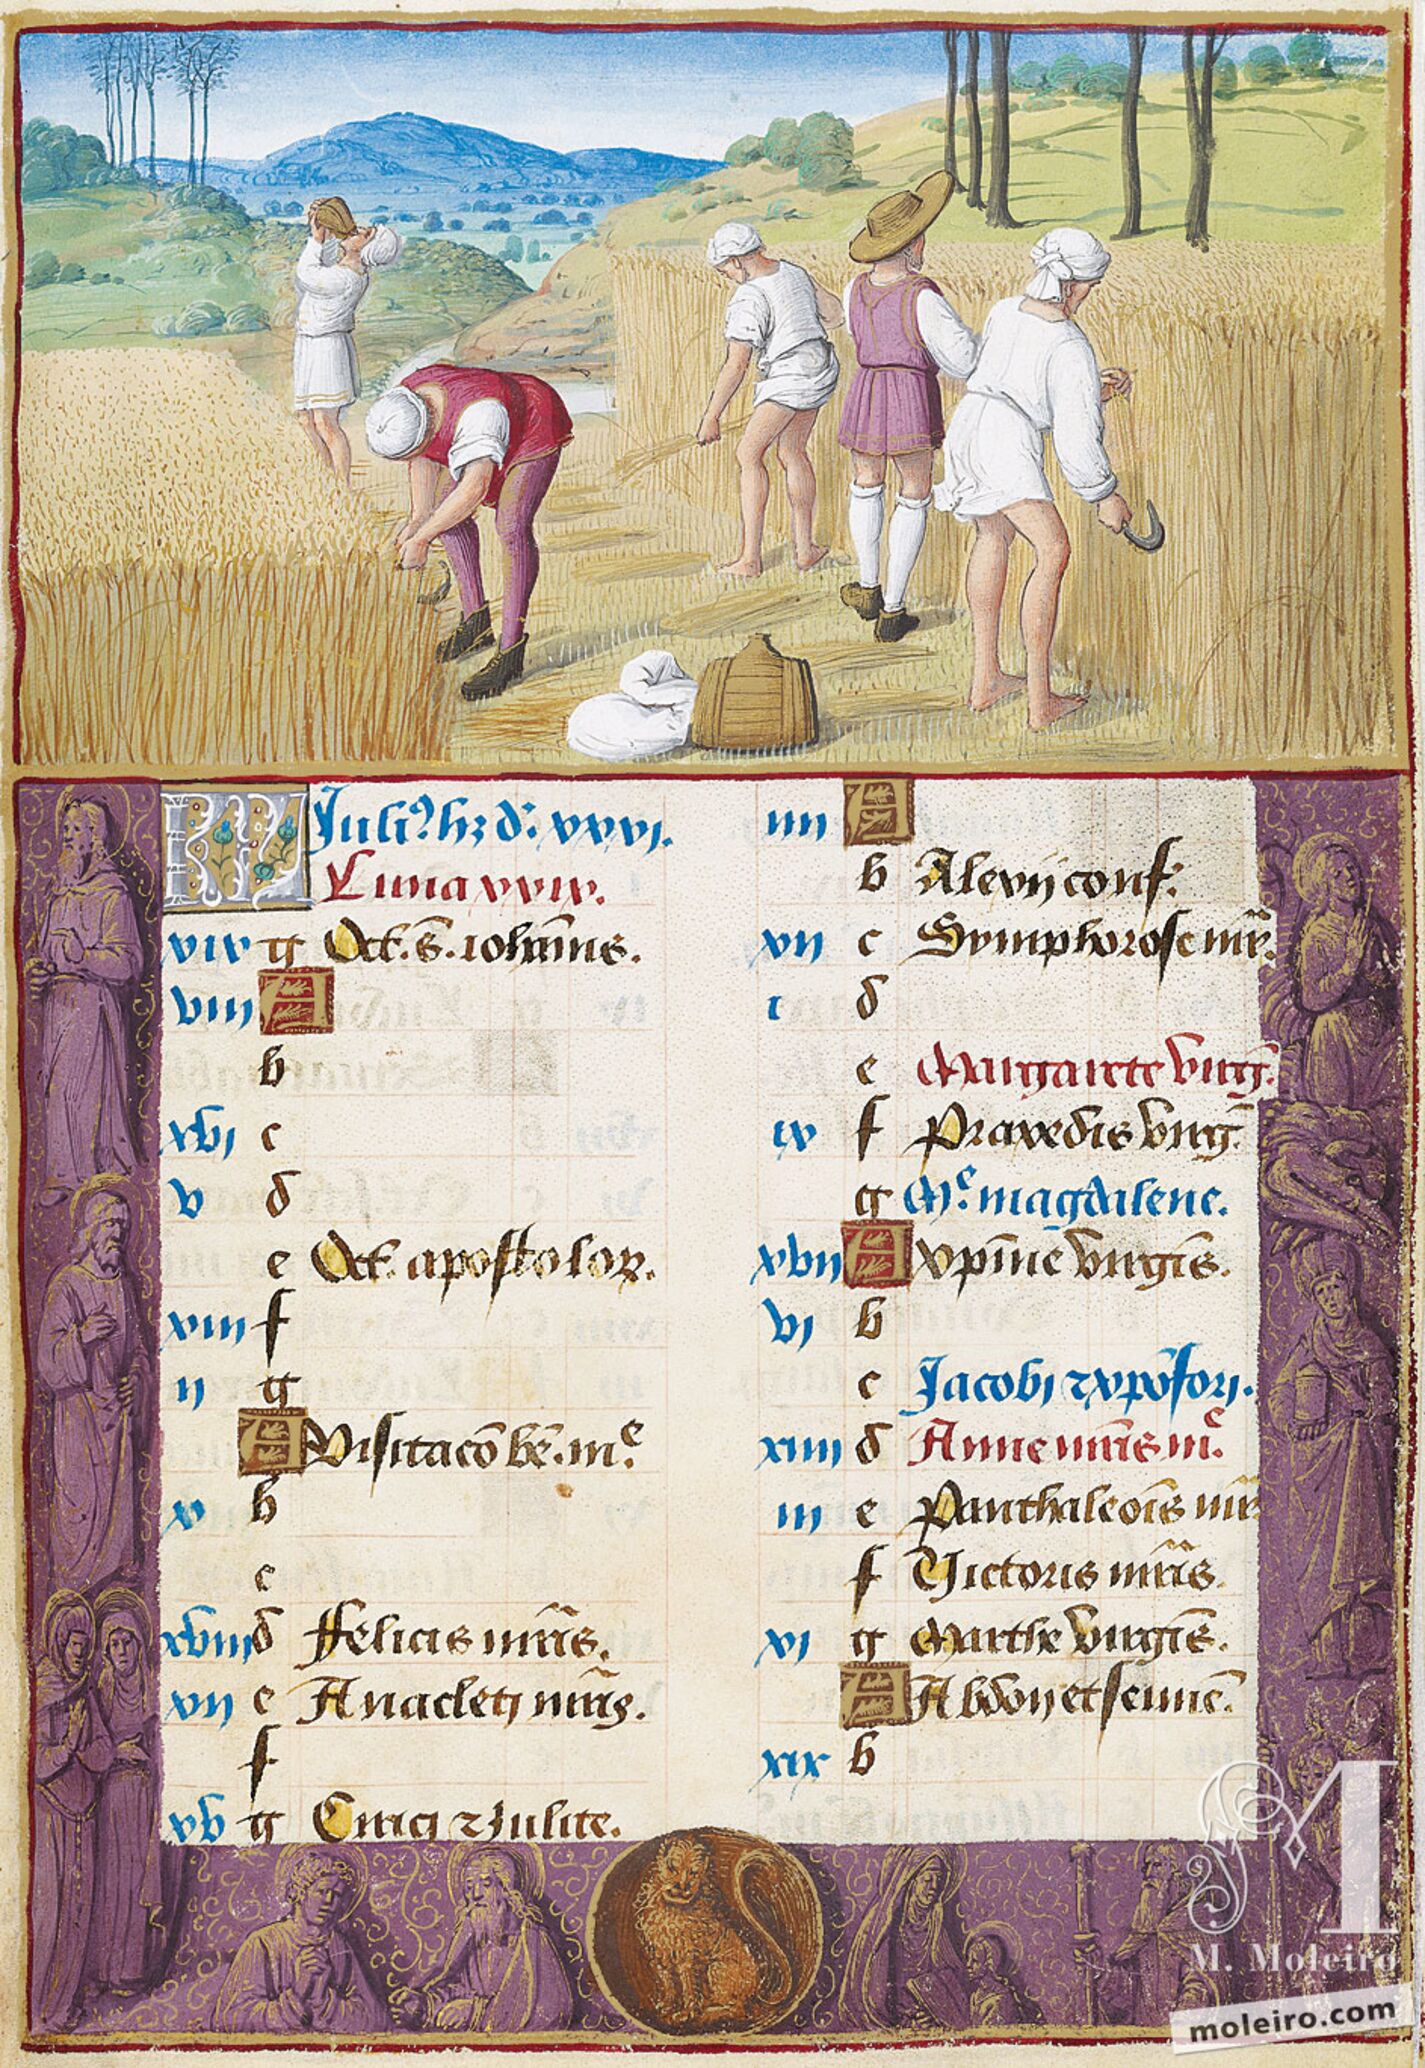 KL Juli⁹ hꝫ d. xxxi.
Luna xxix.
xix g Oct. S. Iohannis.
viii A
b
xvi c
v d
e Oct. apostolor.
xiii f
ii g
A Visitacō be. mᵉ.
x b
c
xviii d Felicis mr̄is.
vii e Anacleti mr̄is.
f
xv g Cirici ꝛ Julite.
iiii A
b Alexii conf.
xii c Symphorose mr̄.
i d
e Margarete virg.
ix f Praxedis virg.
g Mᵉ. magdalene.
xvii A xp̄ine virgīs.
vi b
c Jacobi ꝛ xp̄ofori.
xiiii d Anne mr̄is mᵉ.
iii e Panthaleoīs mr̄.
f Victoris mr̄is.
xi g Marthe virgīs.
A Abdon et sennē.
xix b
M
M. Moleiro
moleiro.com